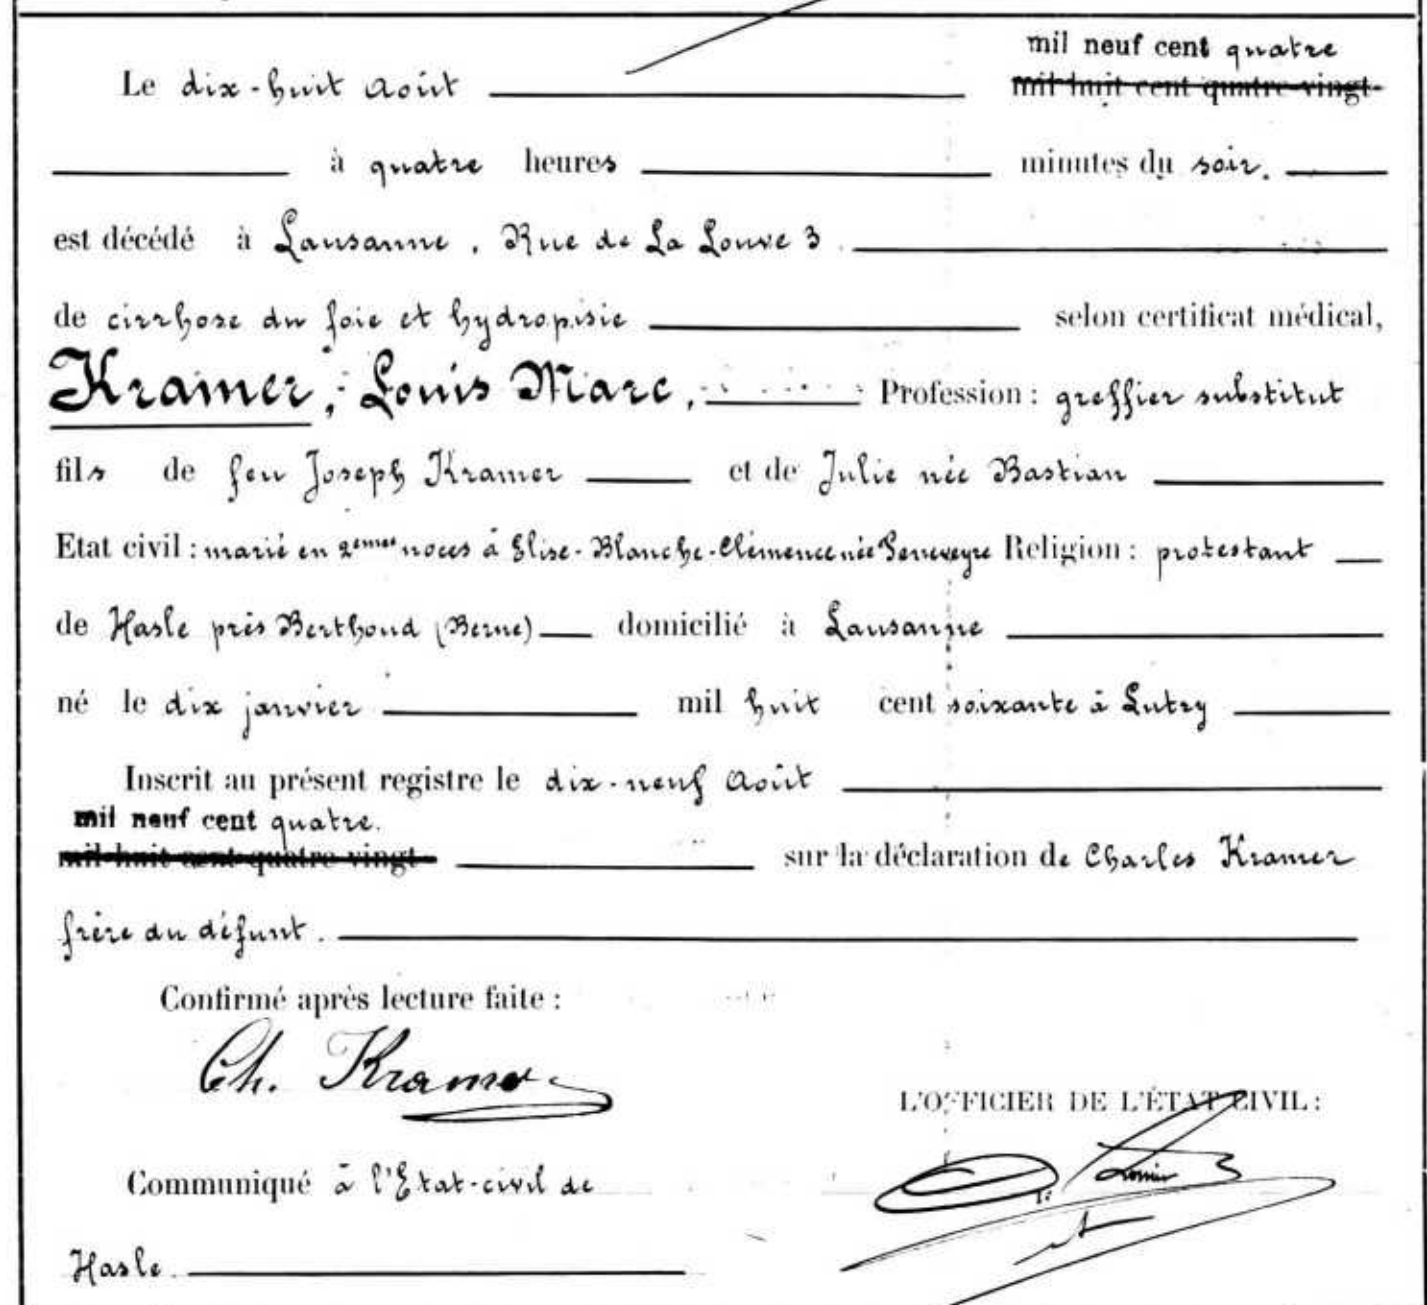 mil neuf cent quatre
Le dix-huit Août mil huit cent quatre-vingt-
à quatre heures minutes du soir.
est décédé à Lausanne, Rue de La Louve 3.
de cirrhose du foie et hydropisie selon certificat médical,
Kramer, Louis Marc, Profession : greffier substitut
fils de feu Joseph Kramer et de Julie née Bastian
Etat civil : marié en 2èmes noces à Elise-Blanche-Clémence née Religion : protestant
de Hasle près Berthoud (Berne) domicilié à Lausanne
né le dix janvier mil huit cent soixante à Lutry
Inscrit au présent registre le dix-neuf Août
mil neuf cent quatre.
mil huit cent quatre-vingt- sur la déclaration de Charles Kramer
frère du défunt.
Confirmé après lecture faite :
Ch. Kramer
L'OFFICIER DE L'ÉTAT CIVIL :
Communiqué à l'Etat-civil de
Hasle.